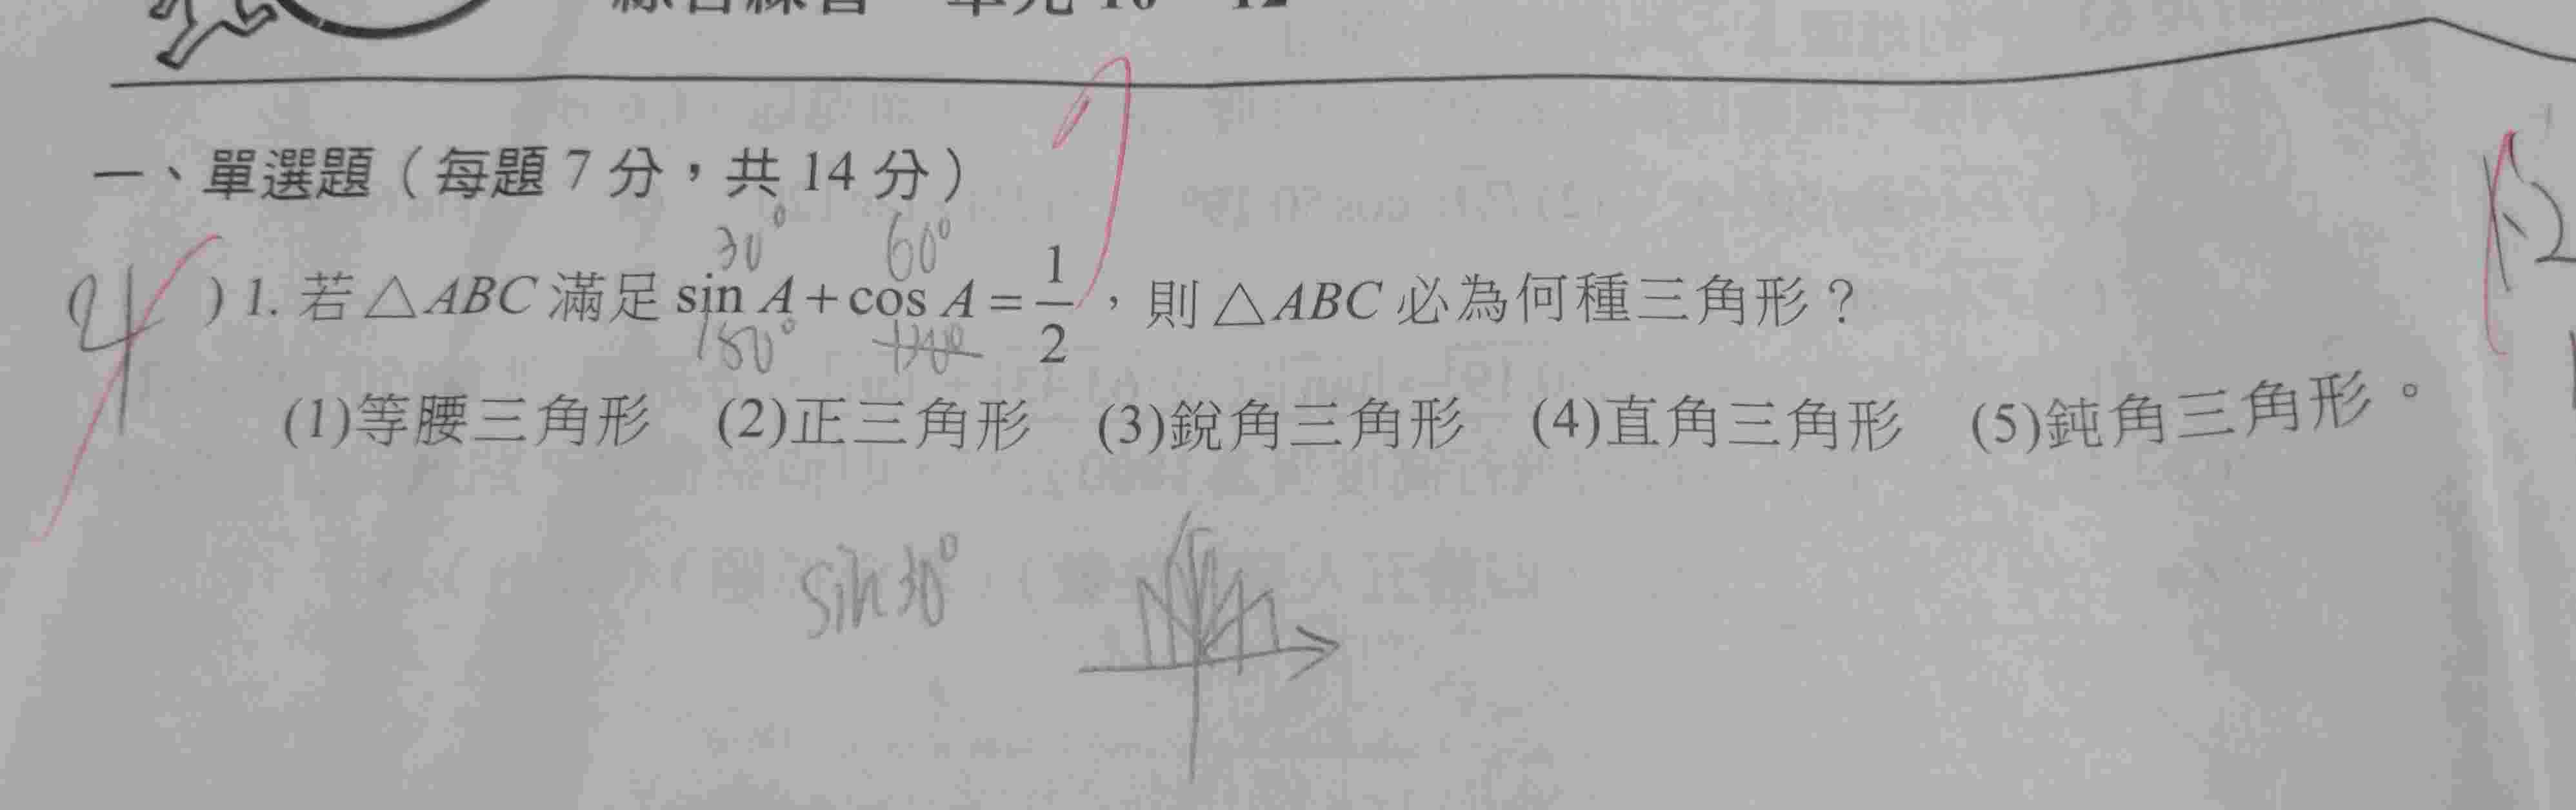 綜合練習 單元 10 12
一、單選題（每題 7 分，共 14 分）
30° 60°
4 ) 1. 若 △ABC 滿足 sin A + cos A = 1/2，則 △ABC 必為何種三角形？
150°
(1)等腰三角形 (2)正三角形 (3)銳角三角形 (4)直角三角形 (5)鈍角三角形。
sin 30°